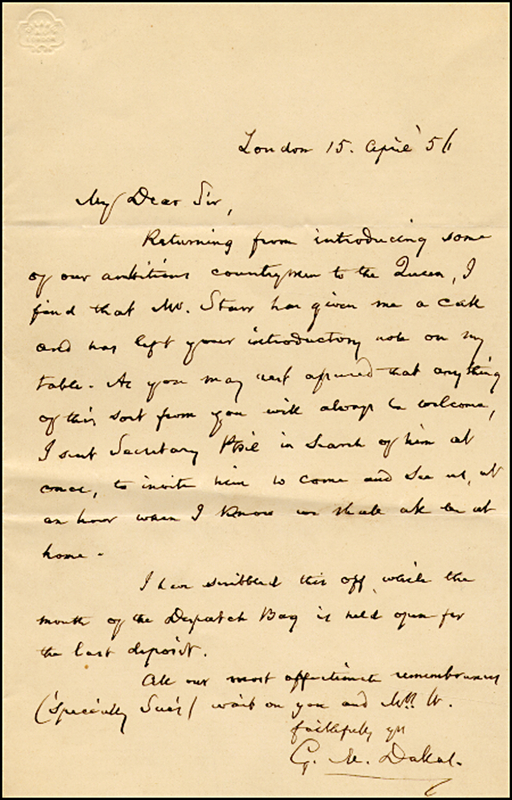 LONDON
London 15. April '56
My Dear Sir,
Returning from introducing some
of our ambitious countrymen to the Queen, I
find that Mr. Starr has given me a call
and has left your introductory note on my
table. As you may rest assured that anything
of this sort from you will always be welcome,
I sent Secretary Phil in search of him at
once, to invite him to come and see us, at
an hour when I know we shall all be at
home.
I have scribbled this off, while the
mouth of the Despatch Bag is held open for
the last deposit.
All our most affectionate remembrances
(specially Sue's) wait on you and Mrs. W.
faithfully yrs
G. M. Dallas.